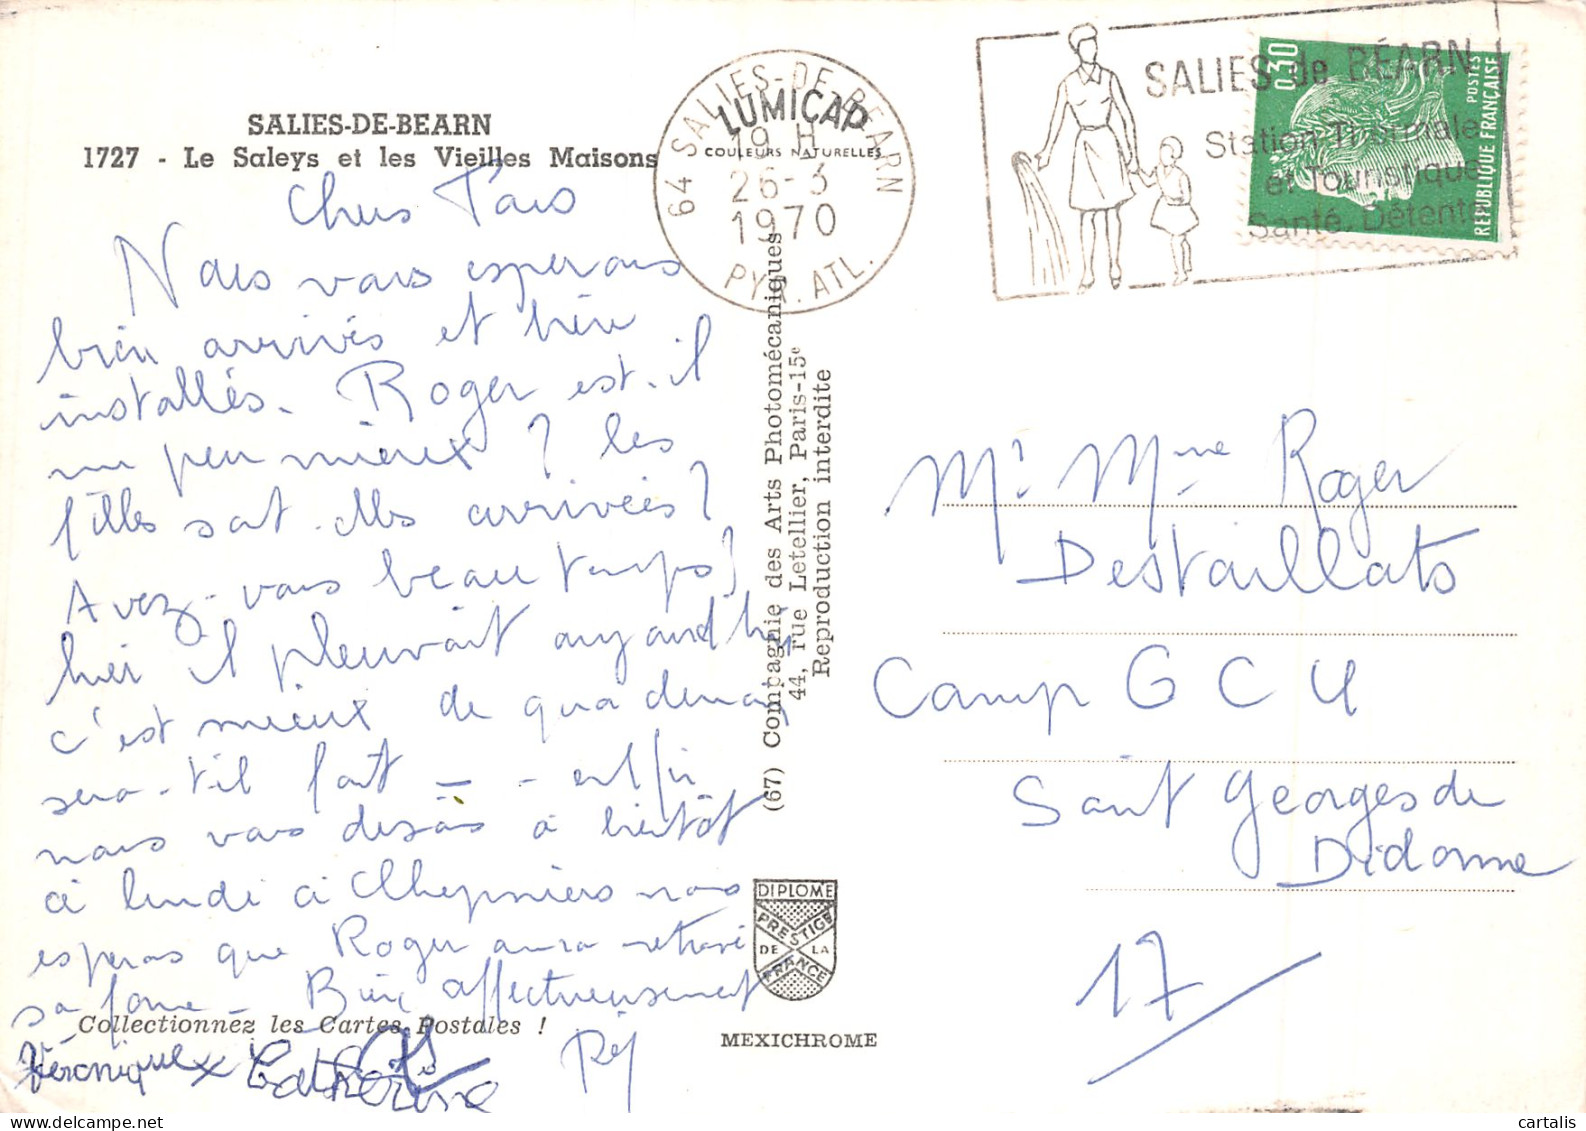 SALIES-DE-BEARN
1727 - Le Saleys et les Vieilles Maisons
LUMICAP
COULEURS NATURELLES
64 SALIES-DE-BEARN
19 H
26-3
1970
PYR. ATL.
SALIES de BÉARN
Station Thermale
et Touristique
Santé, Détente
0,30
POSTES
REPUBLIQUE FRANÇAISE
Chers Tous
Nous vous espérons
bien arrivés et bien
installés. Roger est-il
un peu mieux ? les
filles sont-elles arrivées ?
Avez-vous beau temps ?
hier il pleuvait aujourd'hui
c'est mieux de quoi demain
sera-t'il fait - - enfin
nous vous disons à bientôt
à lundi à nous
espérons que Roger aura retrouvé
sa forme - Bien affectueusement
Véronique Catherine
(67) Compagnie des Arts Photomécaniques
44, rue Letellier, Paris-15e
Reproduction interdite
DIPLOME
PRESTIGE
DE LA
FRANCE
MEXICHROME
Collectionnez les Cartes Postales !
Mr Mme Roger
Destaillats
Camp G C U
Saint Georges de
Didonne
17
cartalis